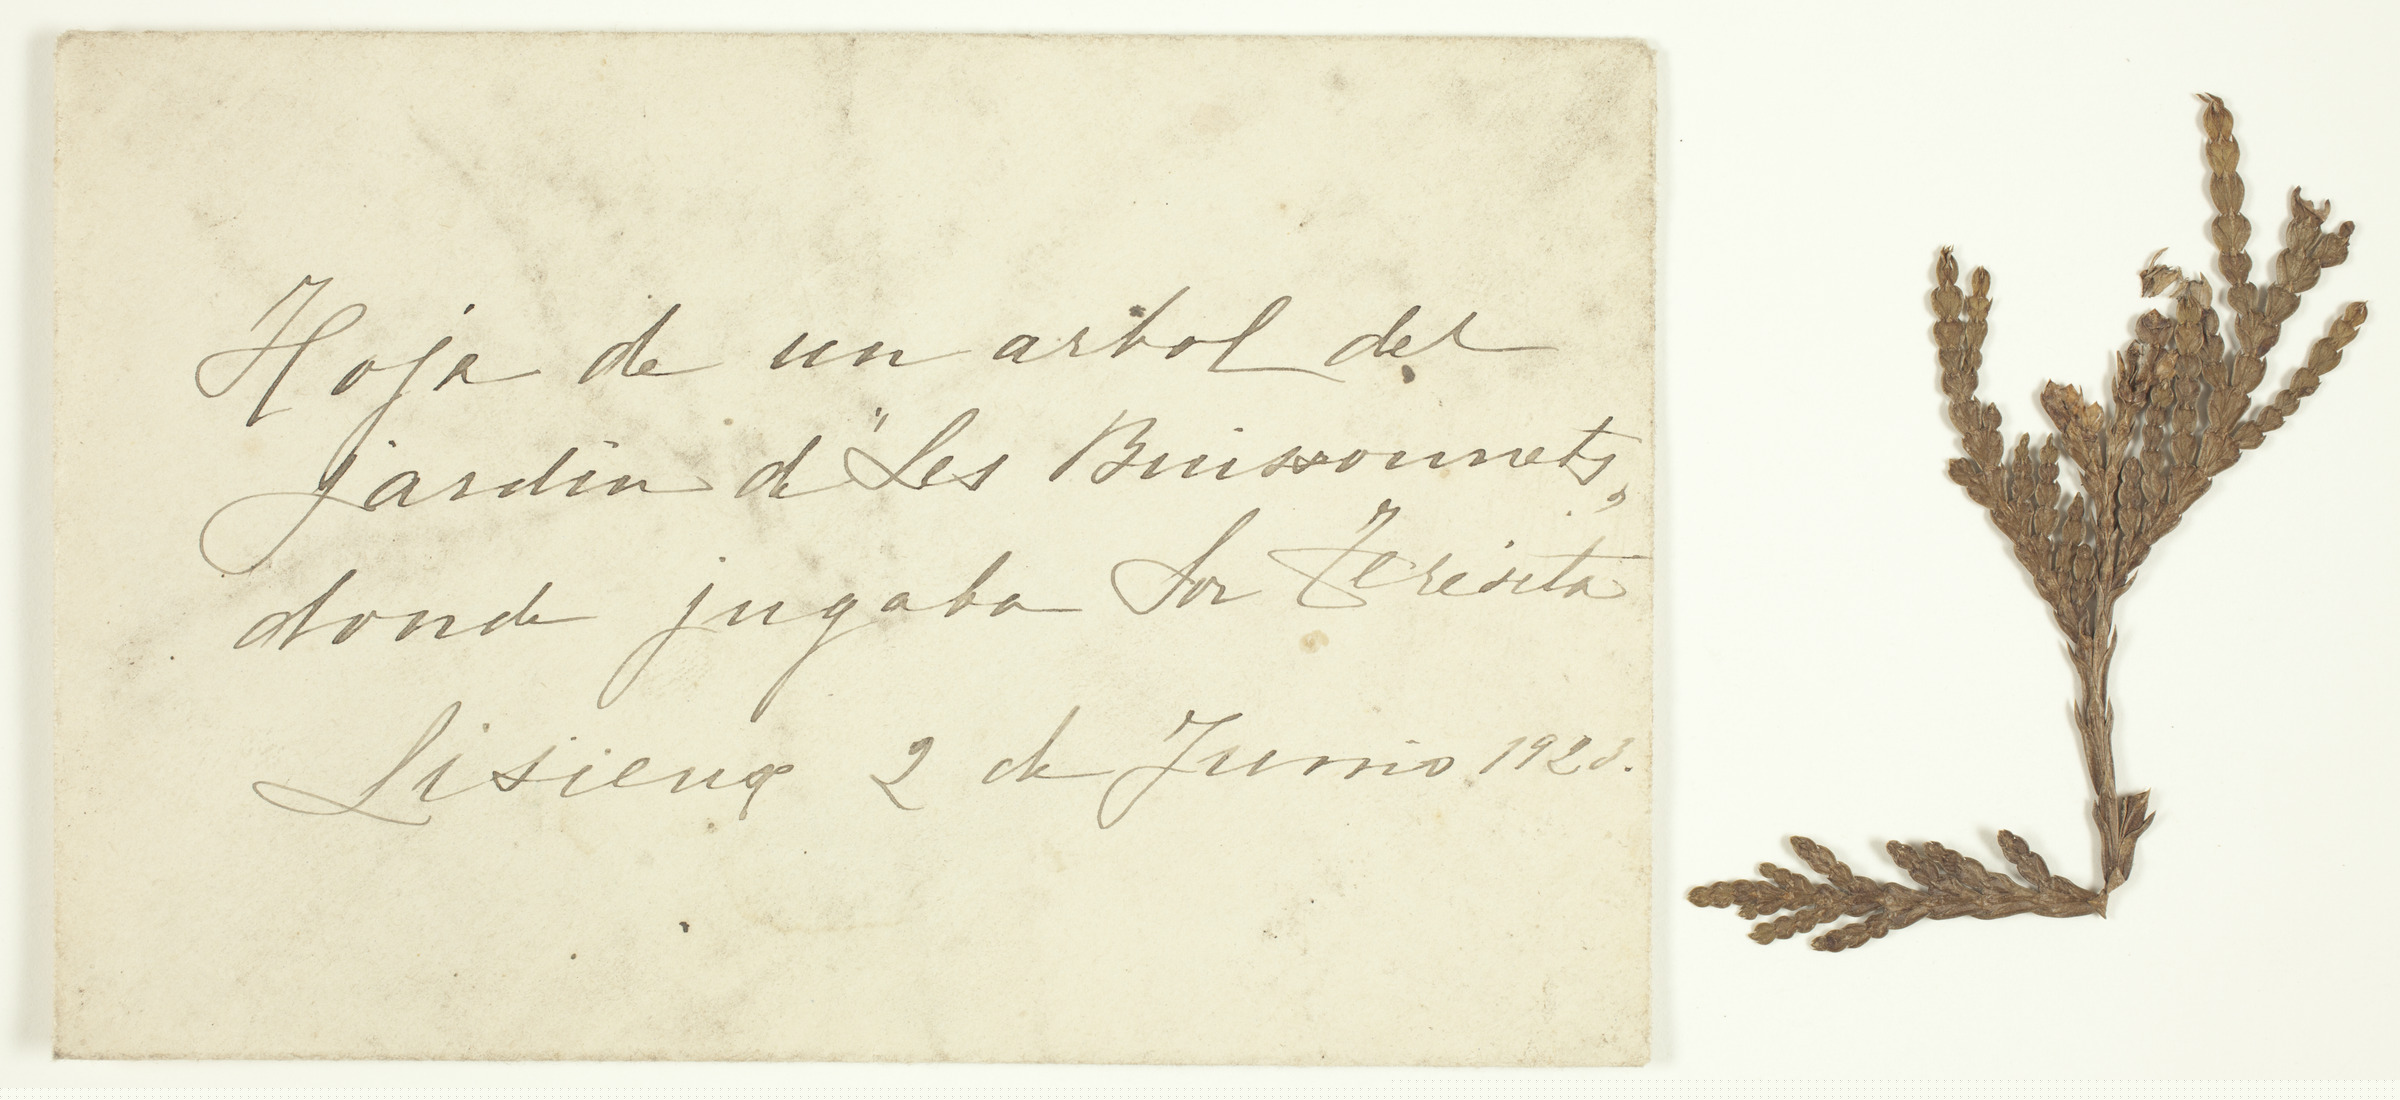 Hoja de un arbol del
jardin de "Les Buissonnets„
donde jugaba Sor Teresita
Lisieux 2 de Junio 1923.